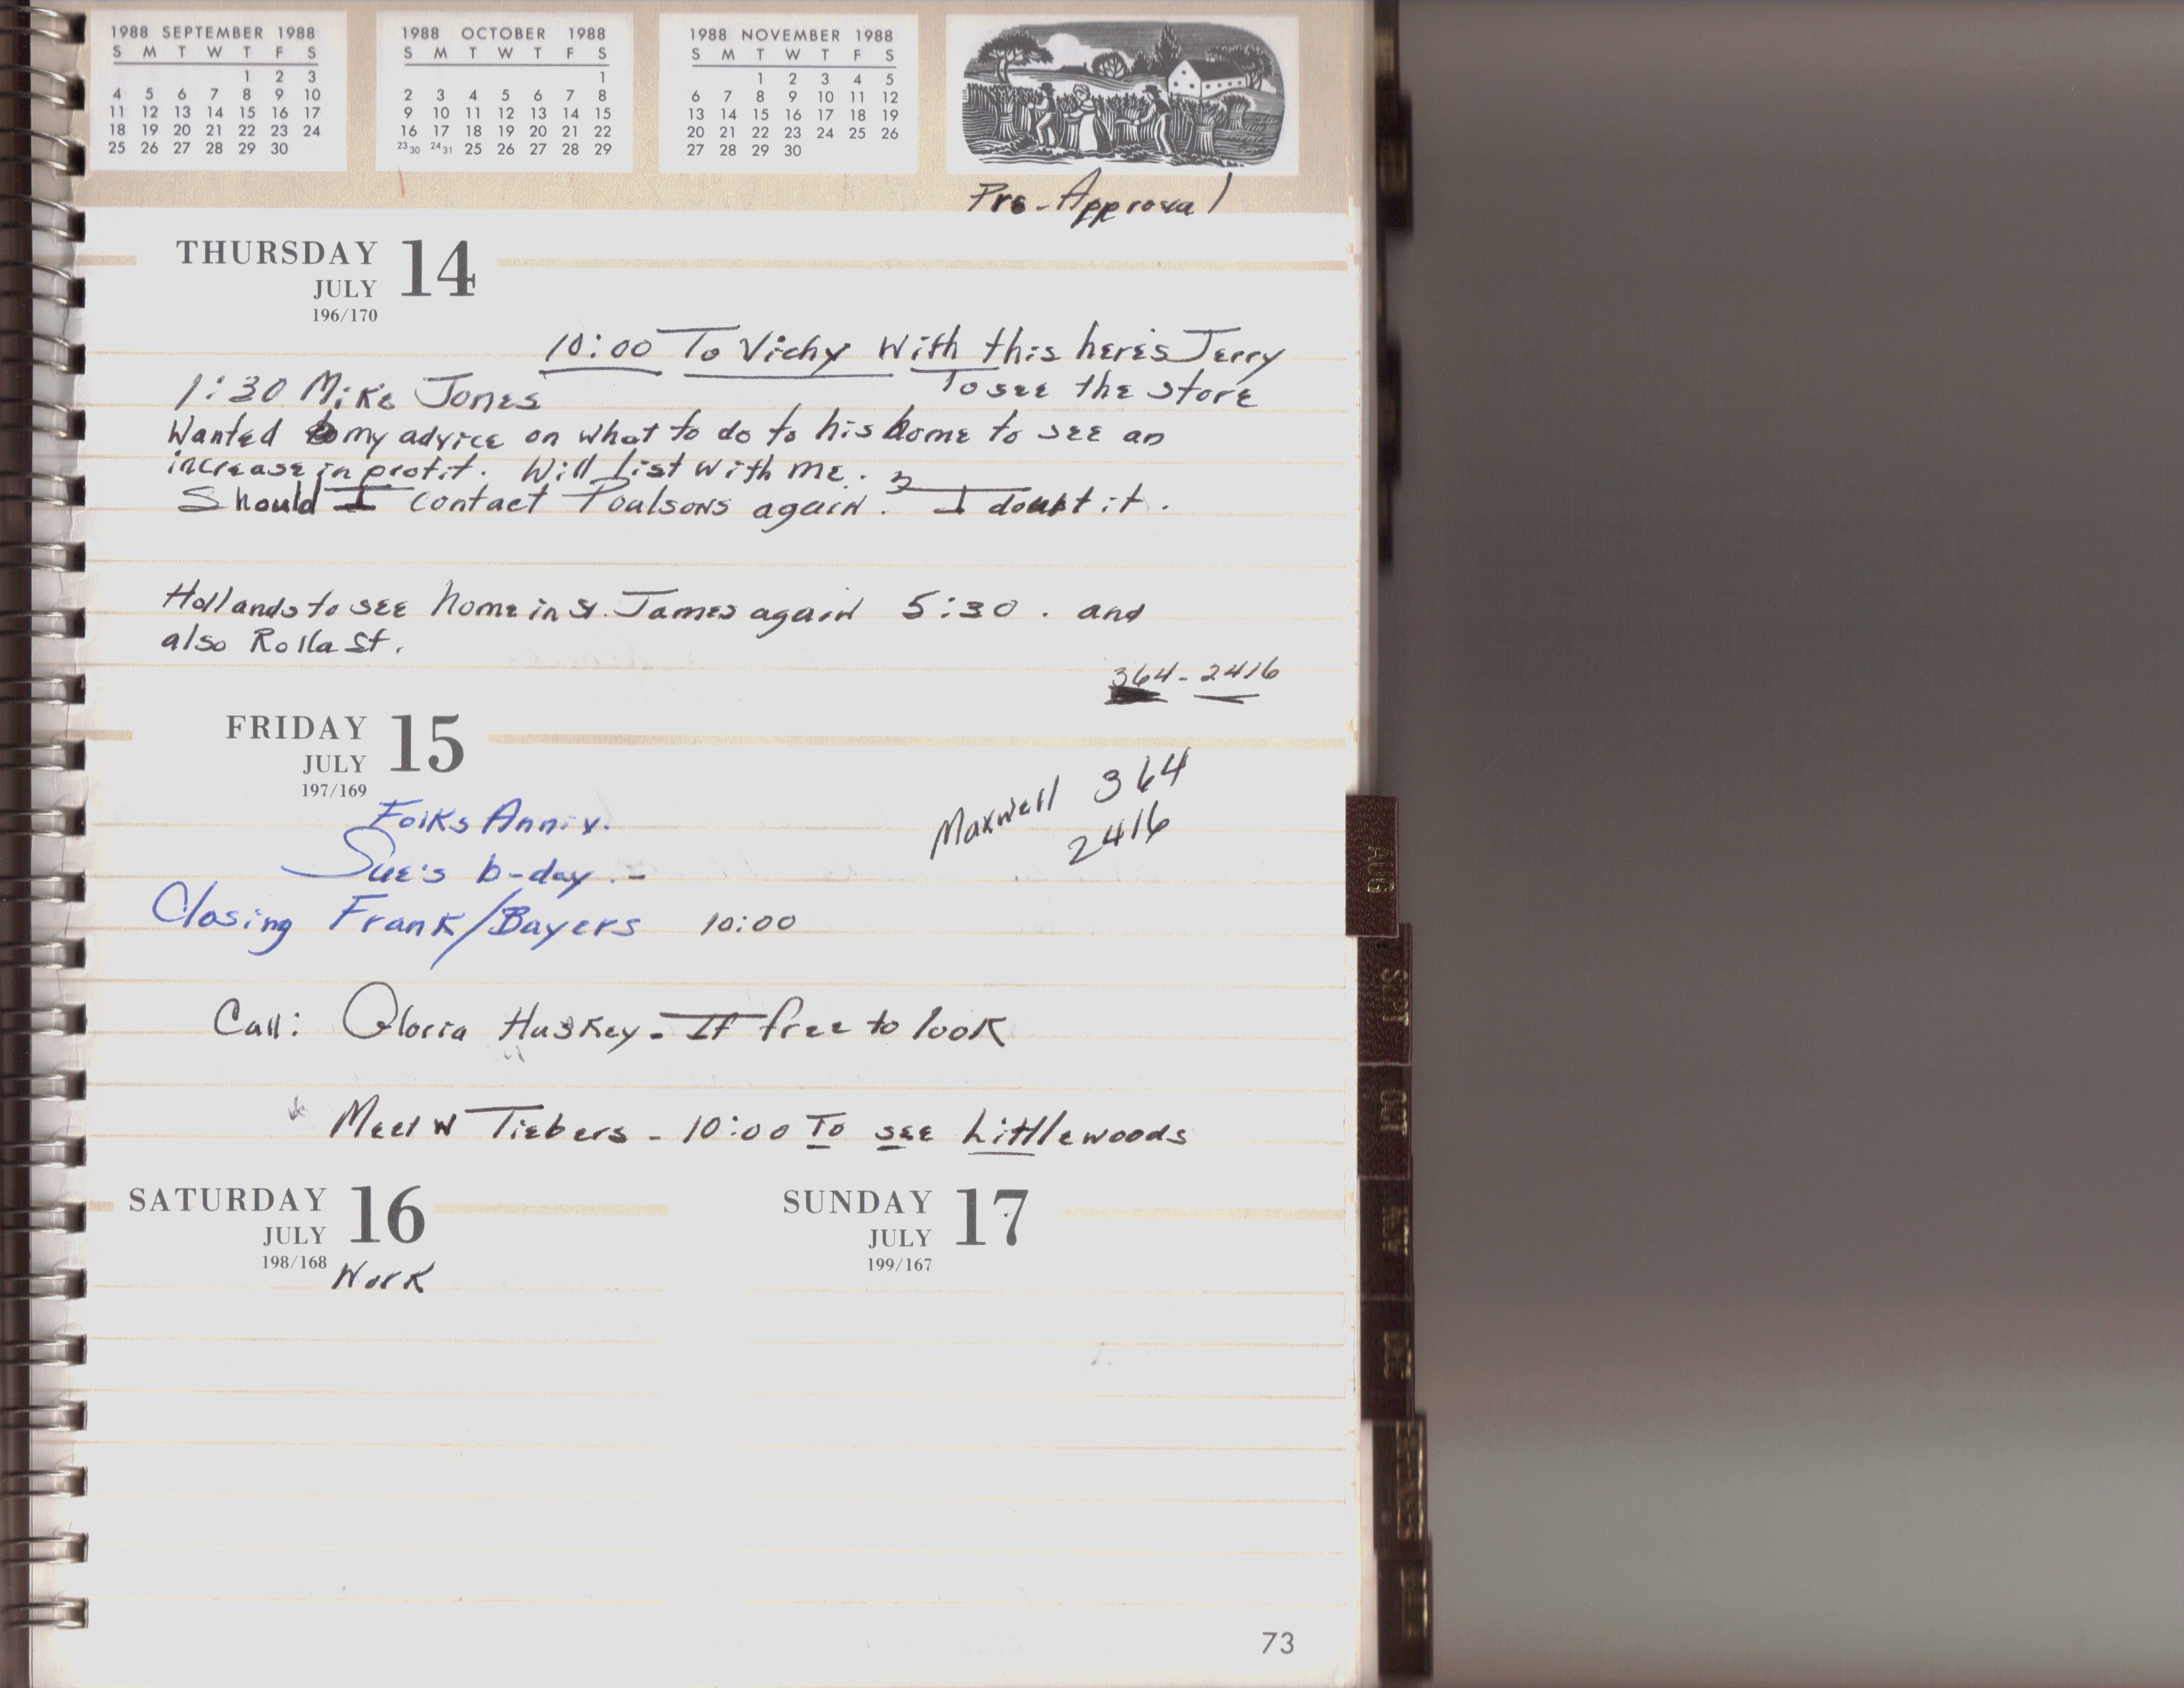 1988 SEPTEMBER 1988
S M T W T F S
1 2 3
4 5 6 7 8 9 10
11 12 13 14 15 16 17
18 19 20 21 22 23 24
25 26 27 28 29 30
1988 OCTOBER 1988
S M T W T F S
1
2 3 4 5 6 7 8
9 10 11 12 13 14 15
16 17 18 19 20 21 22
23 30 24 31 25 26 27 28 29
1988 NOVEMBER 1988
S M T W T F S
1 2 3 4 5
6 7 8 9 10 11 12
13 14 15 16 17 18 19
20 21 22 23 24 25 26
27 28 29 30
Pre-Approval
THURSDAY 14
JULY
196/170
10:00 To Vichy with this here's Jerry
To see the store
1:30 Mike Jones
Wanted my advice on what to do to his home to see an
increase in profit. Will list with me.
Should I contact Poulsons again. I doubt it.
Hollands to see home in St. James again 5:30. and
also Rolla St.
364-2416
FRIDAY 15
JULY
197/169
Maxwell 364
2416
Folks Anniv.
Sue's b-day.-
Closing Frank/Bayers 10:00
Call: Gloria Huskey - If free to look
Meet w Tiebers - 10:00 To see Littlewoods
SATURDAY 16
JULY
198/168
Work
SUNDAY 17
JULY
199/167
73
AUG
SEPT
OCT
NOV
DEC